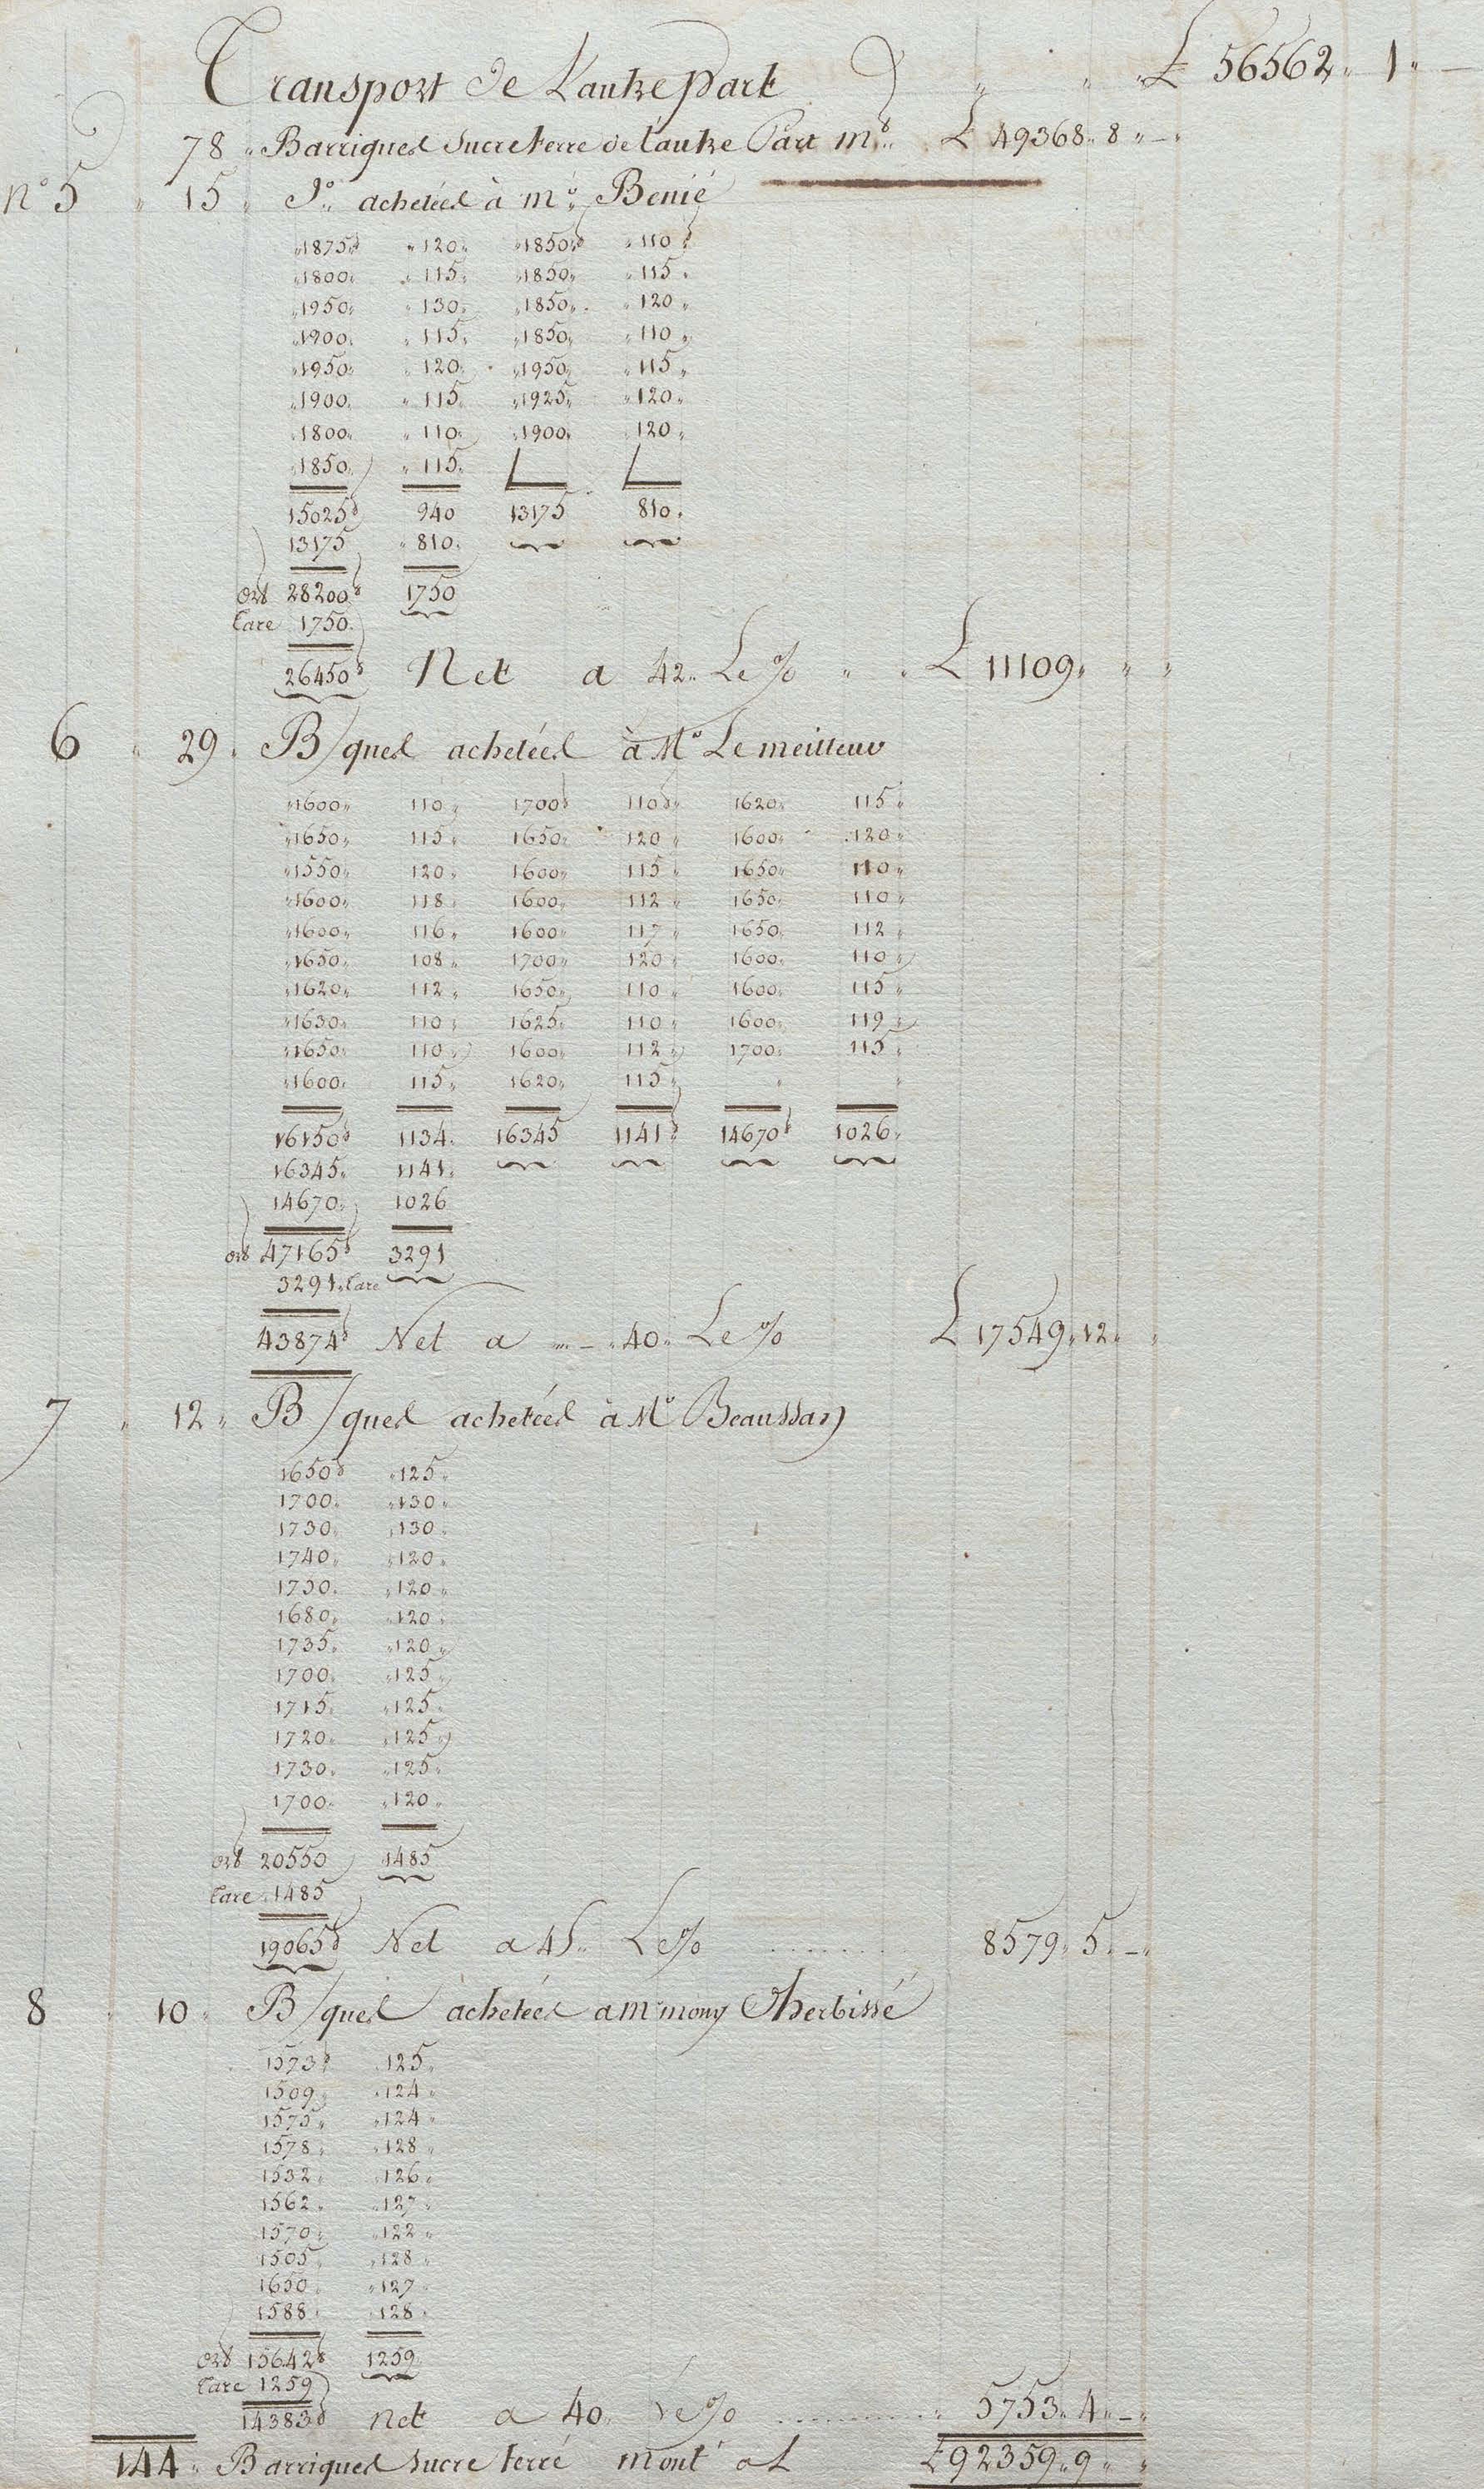 Transport de L'autre part £ 56562 " 1 " —
78 " Barriques Sucre terre de l'autre Part m.t £ 49368 " 8 " —
n° 5 " 15 " D.o achetées à m.r Benié
" 1875 lb " 120 " " 1850 lb " 110 lb
" 1800 " " 115 " " 1850 " " 115 "
" 1950 " " 130 " " 1850 " " 120 "
" 1900 " " 115 " " 1850 " " 110 "
" 1950 " " 120 " " 1950 " " 115 "
" 1900 " " 115 " " 1925 " " 120 "
" 1800 " " 110 " " 1900 " " 120 "
" 1850 " " 115 "
15025 lb 940 13175 810 "
13175 " 810 "
Ort 28200 lb 1750
Tare 1750
26450 lb Net a 42 " Le % " " £ 11109 " " "
6 " 29 " B/ques achetées à M.r Le meilleur
" 1600 " 110 " 1700 lb 110 lb " 1620 " 115 "
" 1650 " 115 " 1650 " 120 " 1600 " 120 "
" 1550 " 120 " 1600 " 115 " 1650 " 110 "
" 1600 " 118 " 1600 " 112 " 1650 " 110 "
" 1600 " 116 " 1600 " 117 " 1650 " 112 "
" 1650 " 108 " 1700 " 120 " 1600 " 110 "
" 1620 " 112 " 1650 " 110 " 1600 " 115 "
" 1630 " 110 " 1625 " 110 " 1600 " 119 "
" 1650 " 110 " 1600 " 112 " 1700 " 115 "
" 1600 " 115 " 1620 " 115 " " "
16150 lb 1134 " 16345 1141 lb 14670 lb 1026 "
16345 " 1141 "
14670 " 1026
Ort 47165 lb 3291
3291 " Tare
43874 lb Net a " — " 40 " Le % £ 17549 " 12 " "
7 " 12 " B/ques achetées à M.r Beaussan
1650 lb " 125 "
1700 " " 130 "
1730 " " 130 "
1740 " " 120 "
1750 " " 120 "
1680 " " 120 "
1735 " " 120 "
1700 " " 125 "
1715 " " 125 "
1720 " " 125 "
1730 " " 125 "
1700 " " 120 "
Ort 20550 1485
Tare " 1485
19065 lb Net a 45 " Le % ........ 8579 " 5 " — "
8 " 10 " B/ques achetées a m.r mony Therbissé
1573 lb " 125 "
1509 " " 124 "
1575 " " 124 "
1578 " " 128 "
1532 " " 126 "
1562 " " 127 "
1570 " " 122 "
1505 " " 128 "
1650 " " 127 "
1588 " " 128 "
Ort 15642 lb 1259
Tare 1259
14383 lb net a 40 " Le % ........ " 5753 " 4 " — "
144 " Barriques Sucre terré mont.t a £ £ 92359 " 9 " "